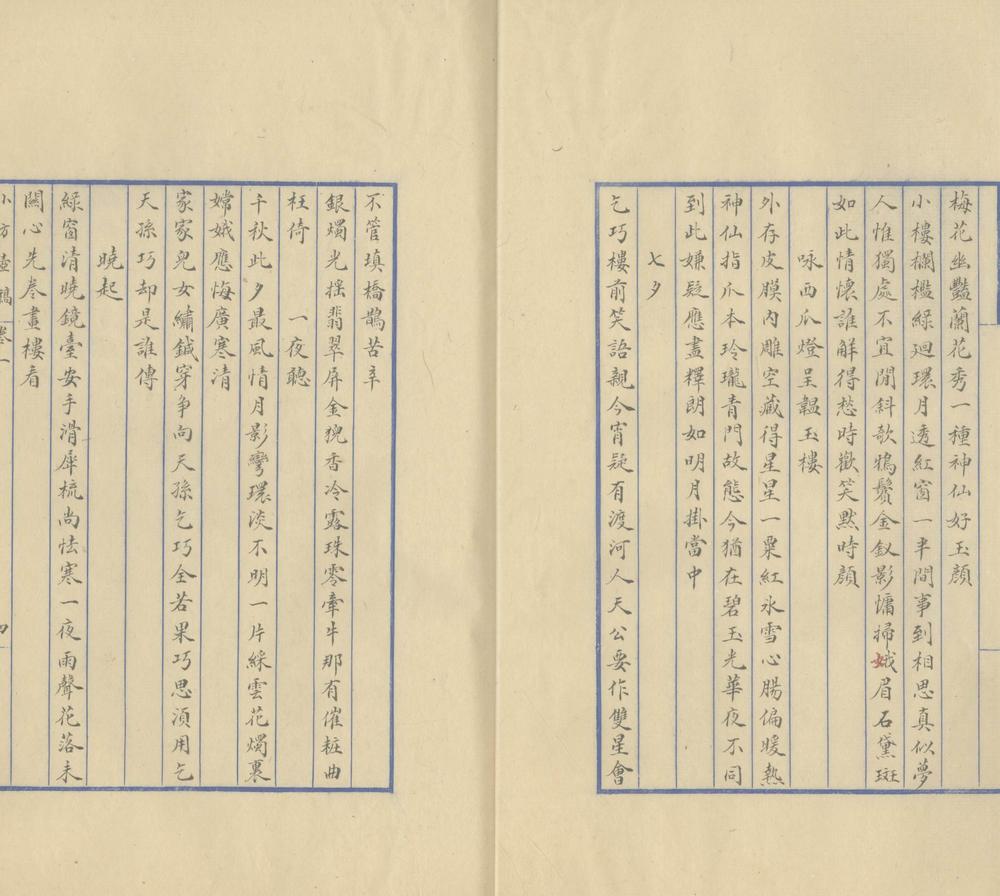 梅花幽豔蘭花秀一種神仙好玉顏
小樓欄檻綠迴環月透紅窗一半間事到相思真似夢
人惟獨處不宜閒斜歌鴉鬢金釵影慵掃娥眉石黛斑
如此情懷誰解得愁時歡笑默時顏
咏西瓜燈呈韞玉樓
外存皮膜內雕空藏得星星一粟紅氷雪心腸偏暖熱
神仙指爪本玲瓏青門故態今猶在碧玉光華夜不同
到此嫌疑應盡釋朗如明月掛當中
七夕
乞巧樓前笑語親今宵疑有渡河人天公要作雙星會
不管填橋鵲苦辛
銀燭光搖翡翠屏金猊香冷露珠零牽牛那有催粧曲
枉倚　一夜聽
千秋此夕最風情月影彎環淡不明一片綵雲花燭裏
嫦娥應悔廣寒清
家家兒女繡鍼穿爭向天孫乞巧全若果巧思須用乞
天孫巧却是誰傳
曉起
綠窗清曉鏡臺安手滑犀梳尚怯寒一夜雨聲花落未
關心先卷畫樓看
小方壺稿 卷一 四